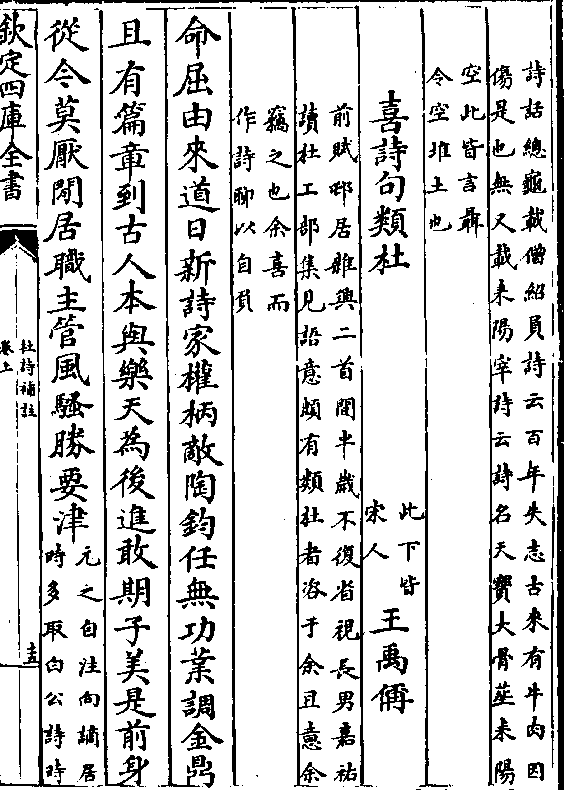 詩話總龜載僧紹員詩云百年失志古來有牛肉因
傷是也無又載耒陽宰詩云詩名天寶大骨塟耒陽
空此皆言聶
令空堆土也
喜詩句類杜 此下皆宋人 王禹偁
前賦邨居雜興二首間半歲不復省視長男嘉祐
讀杜工部集見語意頗有類杜者咨于余且意余
竊之也余喜而
作詩聊以自賀
命屈由來道日新詩家權柄敵陶鈞任無功業調金鼎
且有篇章到古人本與樂天為後進敢期子美是前身
從今莫厭閒居職主管風騷勝要津 元之自注向謫居
時多取白公詩時
欽定四庫全書
杜詩補註
卷上
十五